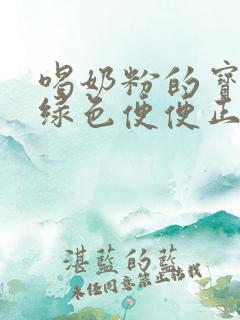 喝奶粉的寶
綠色便便正
湛藍的藍
未任同意禁止轉載